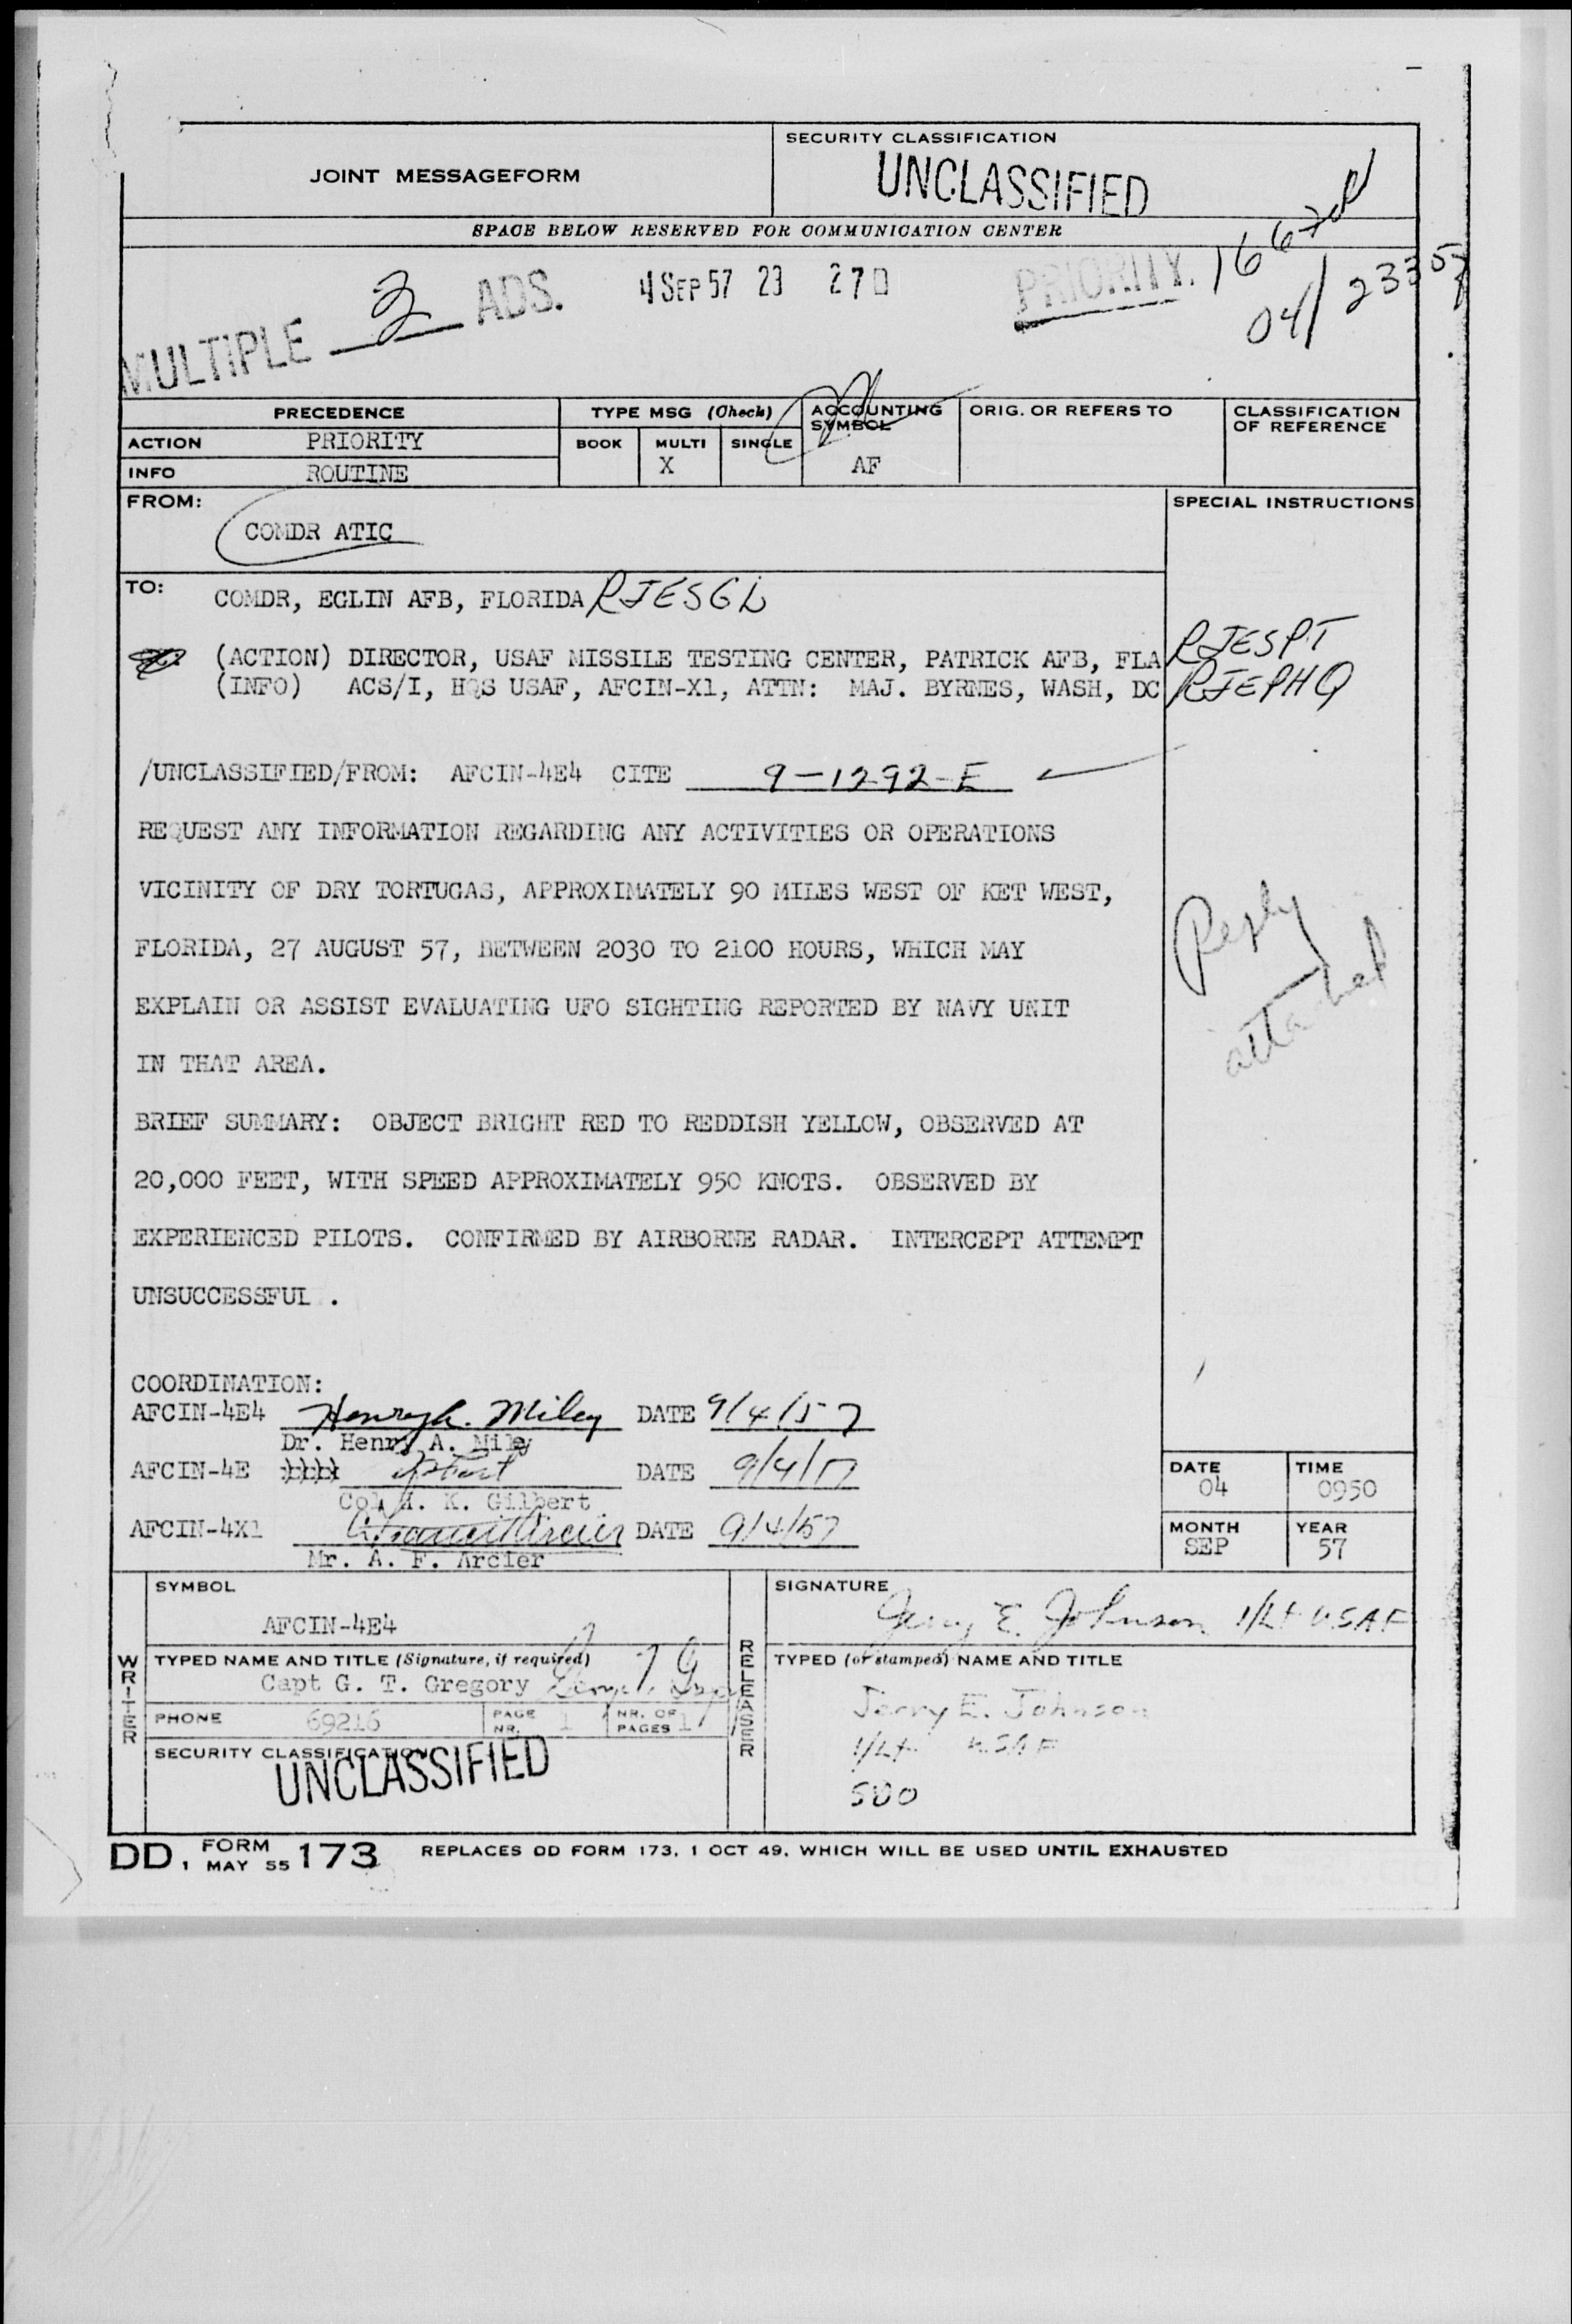 JOINT MESSAGEFORM
SECURITY CLASSIFICATION
UNCLASSIFIED
SPACE BELOW RESERVED FOR COMMUNICATION CENTER
MULTIPLE 2 ADS.
4 SEP 57 23 27
PRIORITY.
04/2335
PRECEDENCE
TYPE MSG (Check)
ACCOUNTING SYMBOL
ORIG. OR REFERS TO
CLASSIFICATION OF REFERENCE
ACTION PRIORITY
BOOK MULTI SINGLE
INFO ROUTINE
X
AF
FROM:
SPECIAL INSTRUCTIONS
COMDR ATIC
TO:
COMDR, EGLIN AFB, FLORIDA RJESGL
(ACTION) DIRECTOR, USAF MISSILE TESTING CENTER, PATRICK AFB, FLA RJESPT
(INFO) ACS/I, HQS USAF, AFCIN-X1, ATTN: MAJ. BYRNES, WASH, DC RJEPHQ
/UNCLASSIFIED/FROM: AFCIN-4E4 CITE 9-1292-E
REQUEST ANY INFORMATION REGARDING ANY ACTIVITIES OR OPERATIONS
VICINITY OF DRY TORTUGAS, APPROXIMATELY 90 MILES WEST OF KET WEST,
FLORIDA, 27 AUGUST 57, BETWEEN 2030 TO 2100 HOURS, WHICH MAY
EXPLAIN OR ASSIST EVALUATING UFO SIGHTING REPORTED BY NAVY UNIT
IN THAT AREA.
Reply
attached
BRIEF SUMMARY: OBJECT BRIGHT RED TO REDDISH YELLOW, OBSERVED AT
20,000 FEET, WITH SPEED APPROXIMATELY 950 KNOTS. OBSERVED BY
EXPERIENCED PILOTS. CONFIRMED BY AIRBORNE RADAR. INTERCEPT ATTEMPT
UNSUCCESSFUL .
COORDINATION:
AFCIN-4E4 Henry A. Miley DATE 9/4/57
Dr. Henry A. Miley
AFCIN-4E DATE 9/4/57
Col H. K. Gilbert
AFCIN-4X1 DATE 9/4/57
Mr. A. F. Arcier
DATE 04
TIME 0950
MONTH SEP
YEAR 57
WRITER
SYMBOL
AFCIN-4E4
TYPED NAME AND TITLE (Signature, if required)
Capt G. T. Gregory
PHONE 69216
PAGE NR. 1
NR. OF PAGES 1
SECURITY CLASSIFICATION
UNCLASSIFIED
RELEASER
SIGNATURE
Jerry E. Johnson 1/Lt USAF
TYPED (or stamped) NAME AND TITLE
Jerry E. Johnson
1/Lt USAF
SDO
DD, FORM 1 MAY 55 173 REPLACES DD FORM 173, 1 OCT 49, WHICH WILL BE USED UNTIL EXHAUSTED